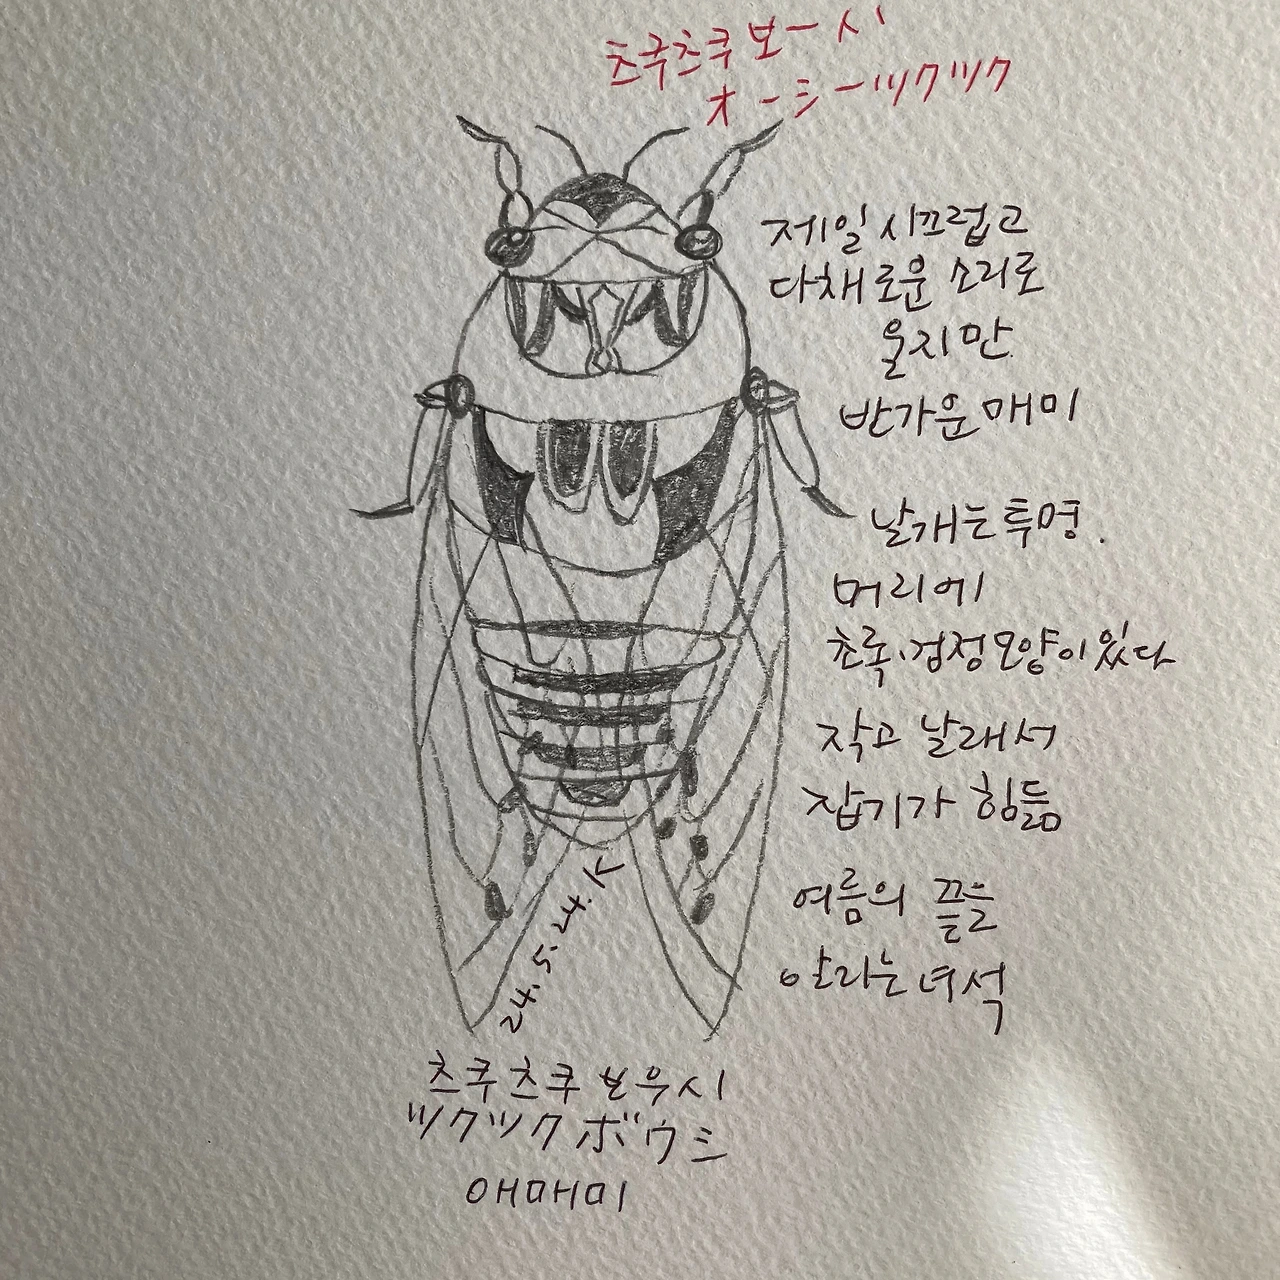 츠쿠츠쿠보ー시
オーシーツクツク
제일 시끄럽고
다채로운 소리로
울지만
반가운 매미
날개는 투명.
머리에
초록·검정 모양이 있다
작고 날래서
잡기가 힘듦
여름의 끝을
알리는 녀석
24.5.24.K
츠쿠츠쿠보우시
ツクツクボウシ
애매미